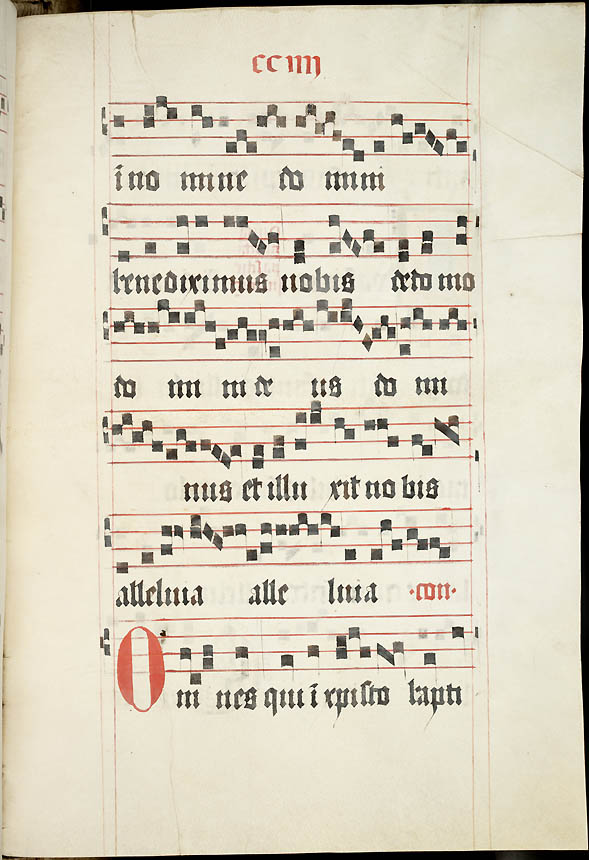 cc iiij
ī no mine do mini
benediximus uobis dedo mo
do mi ni de us do mi
nus et illu xit no bis
alleluia alle luia ·con·
O m nes qui ī xpisto bapti